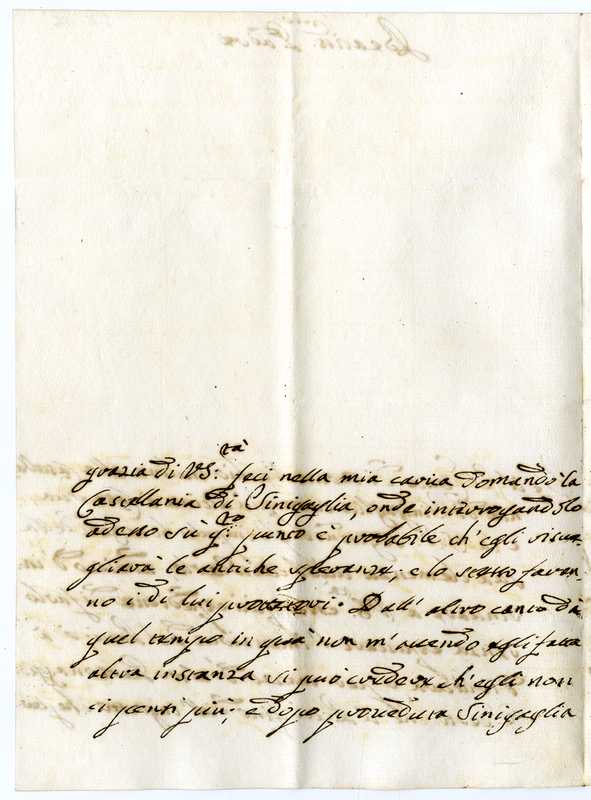 grazia di VS:tà feci nella mia carica domandò la
Castellania di Sinigaglia, onde interrogandolo
adesso sù q:to punto è probabile ch'egli risve-
gliarà le antiche speranze, e lo stesso faran-
no i di lui protettori. Dall'altro canto dà
quel tempo in quà non m'avendo egli fatta
altra instanza si può credere ch'egli non
ci pensi più; e dopo proveduta Sinigaglia